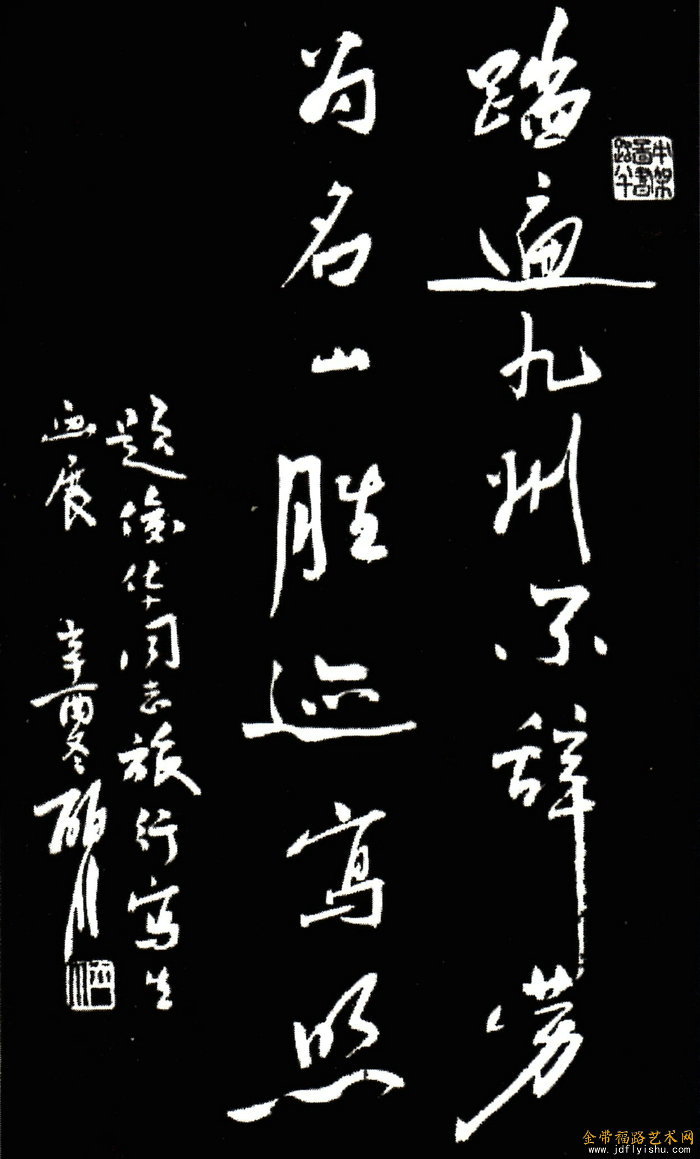 踏遍九州不辞劳
为名山胜迹写照
题俊华同志旅行写生
画展 辛酉冬
金带福路艺术网
www.jdflyishu.com